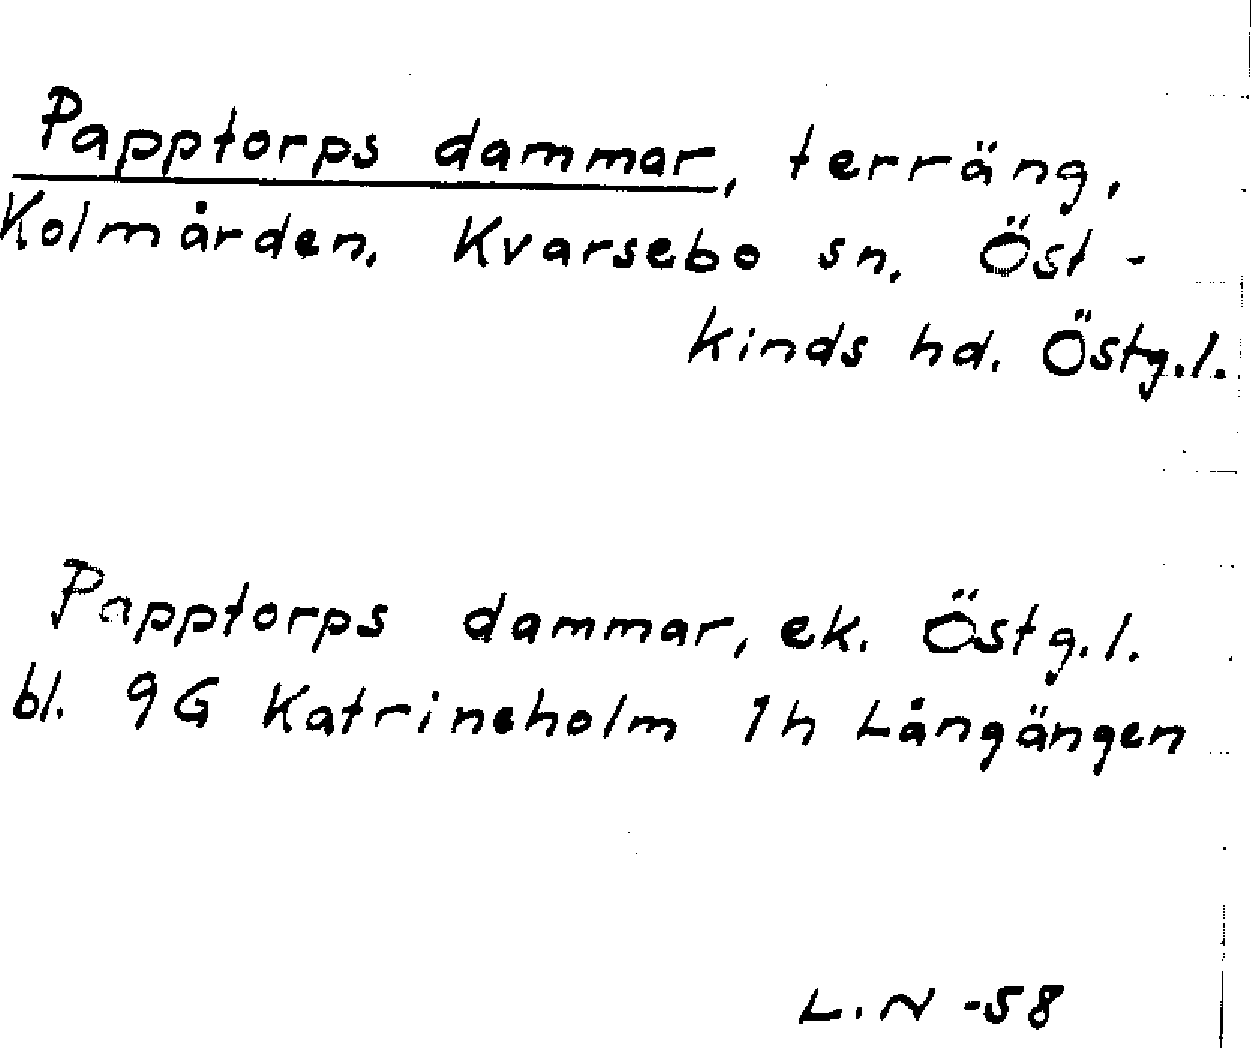 Papptorps dammar, terräng,
Kolmården, Kvarsebo sn, Öst-
kinds hd. Östg.l.
Papptorps dammar, ek. Östg.l.
bl. 9G Katrineholm 1h Långängen
L.N -58